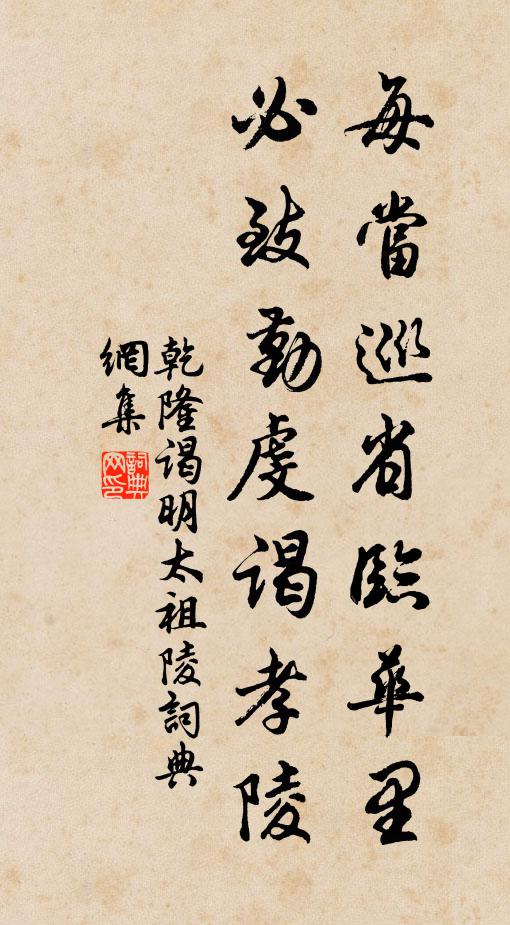 每當巡省臨華里
必致勤虔謁孝陵
乾隆謁明太祖陵詞典
網集
詞典網印